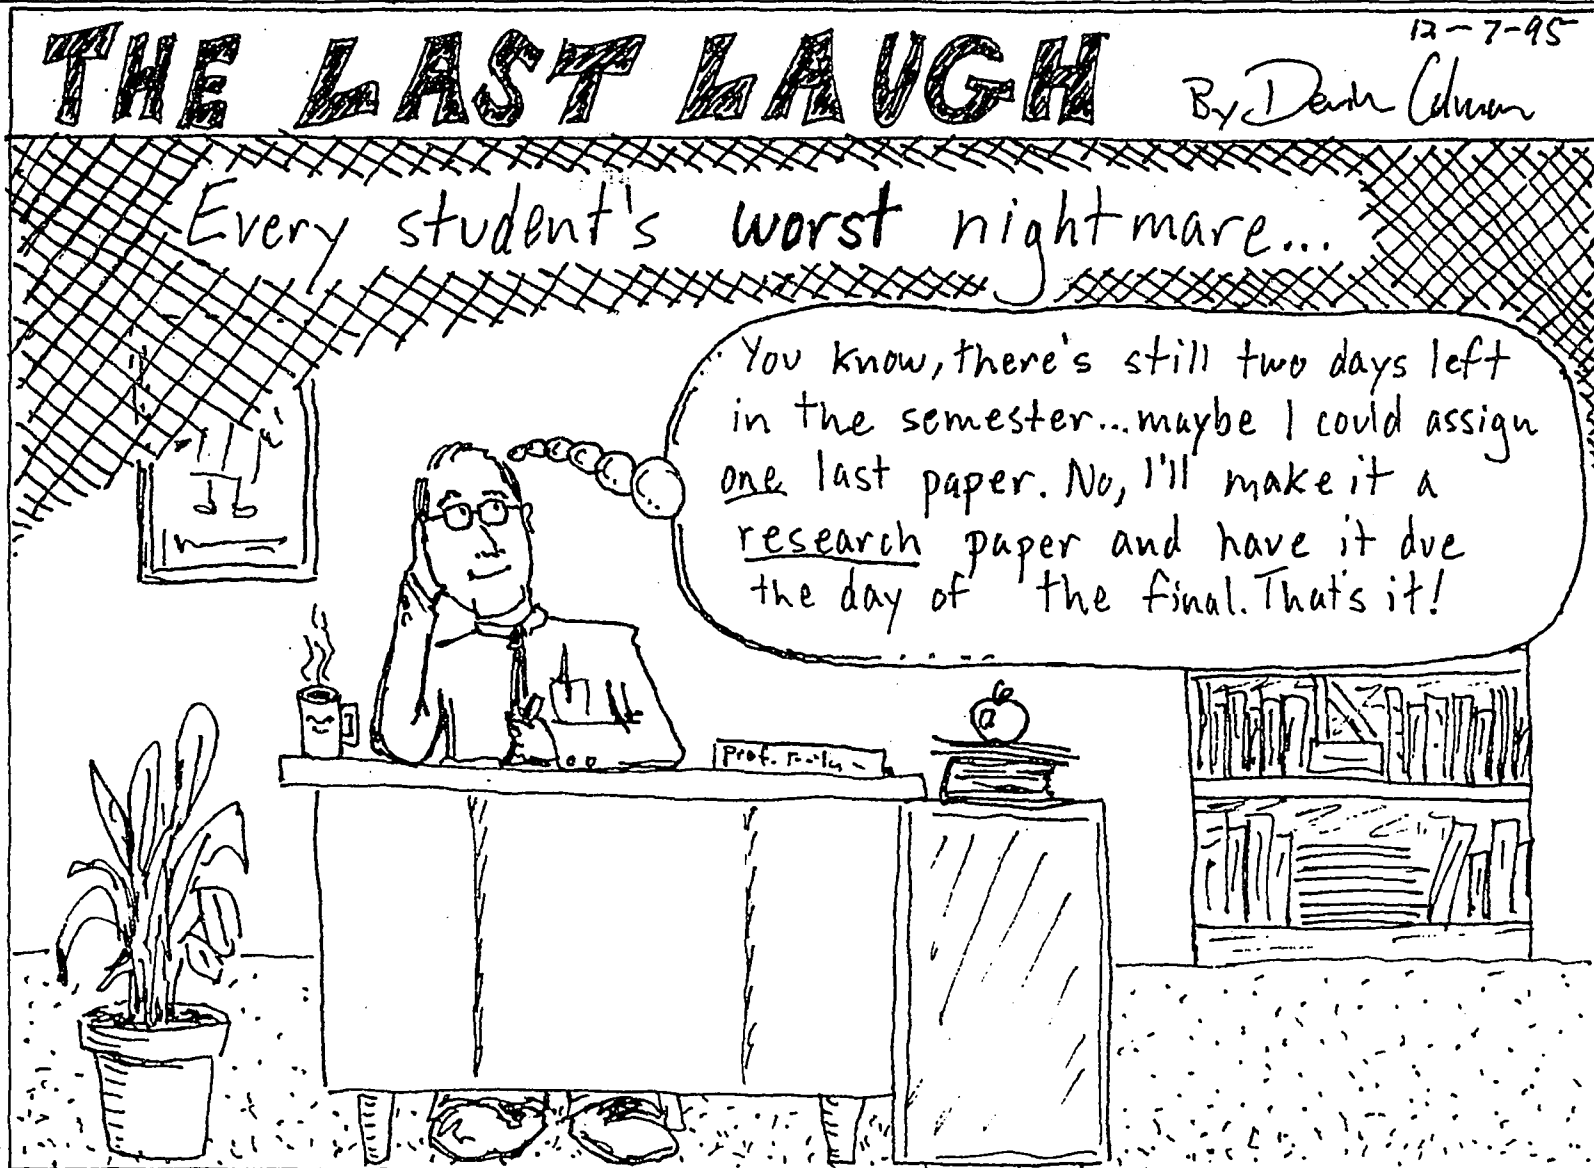 THE LAST LAUGH
12-7-95
By Devin Colman
Every student's worst nightmare...
You know, there's still two days left
in the semester...maybe I could assign
one last paper. No, I'll make it a
research paper and have it due
the day of the final. That's it!
Prof.